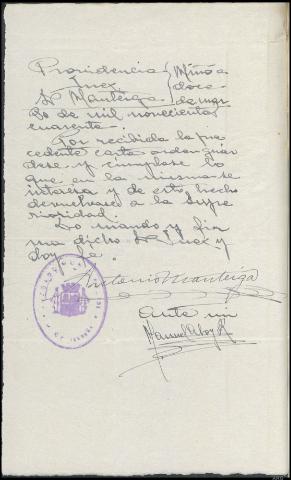 Providencia
Juez
Sr Manteiga
Miño a
doce
de mar
zo de mil novecientos
cuarenta.
Por recibida la pre
cedente carta orden guar
dese y cumplase lo
que en la misma se
interesa y de esto hecho
devuelvase a la Supe
rioridad.
Lo mando y fir
ma dicho Sr Juez y
doy fe.
Antonio Manteiga
Ante mi
Manuel